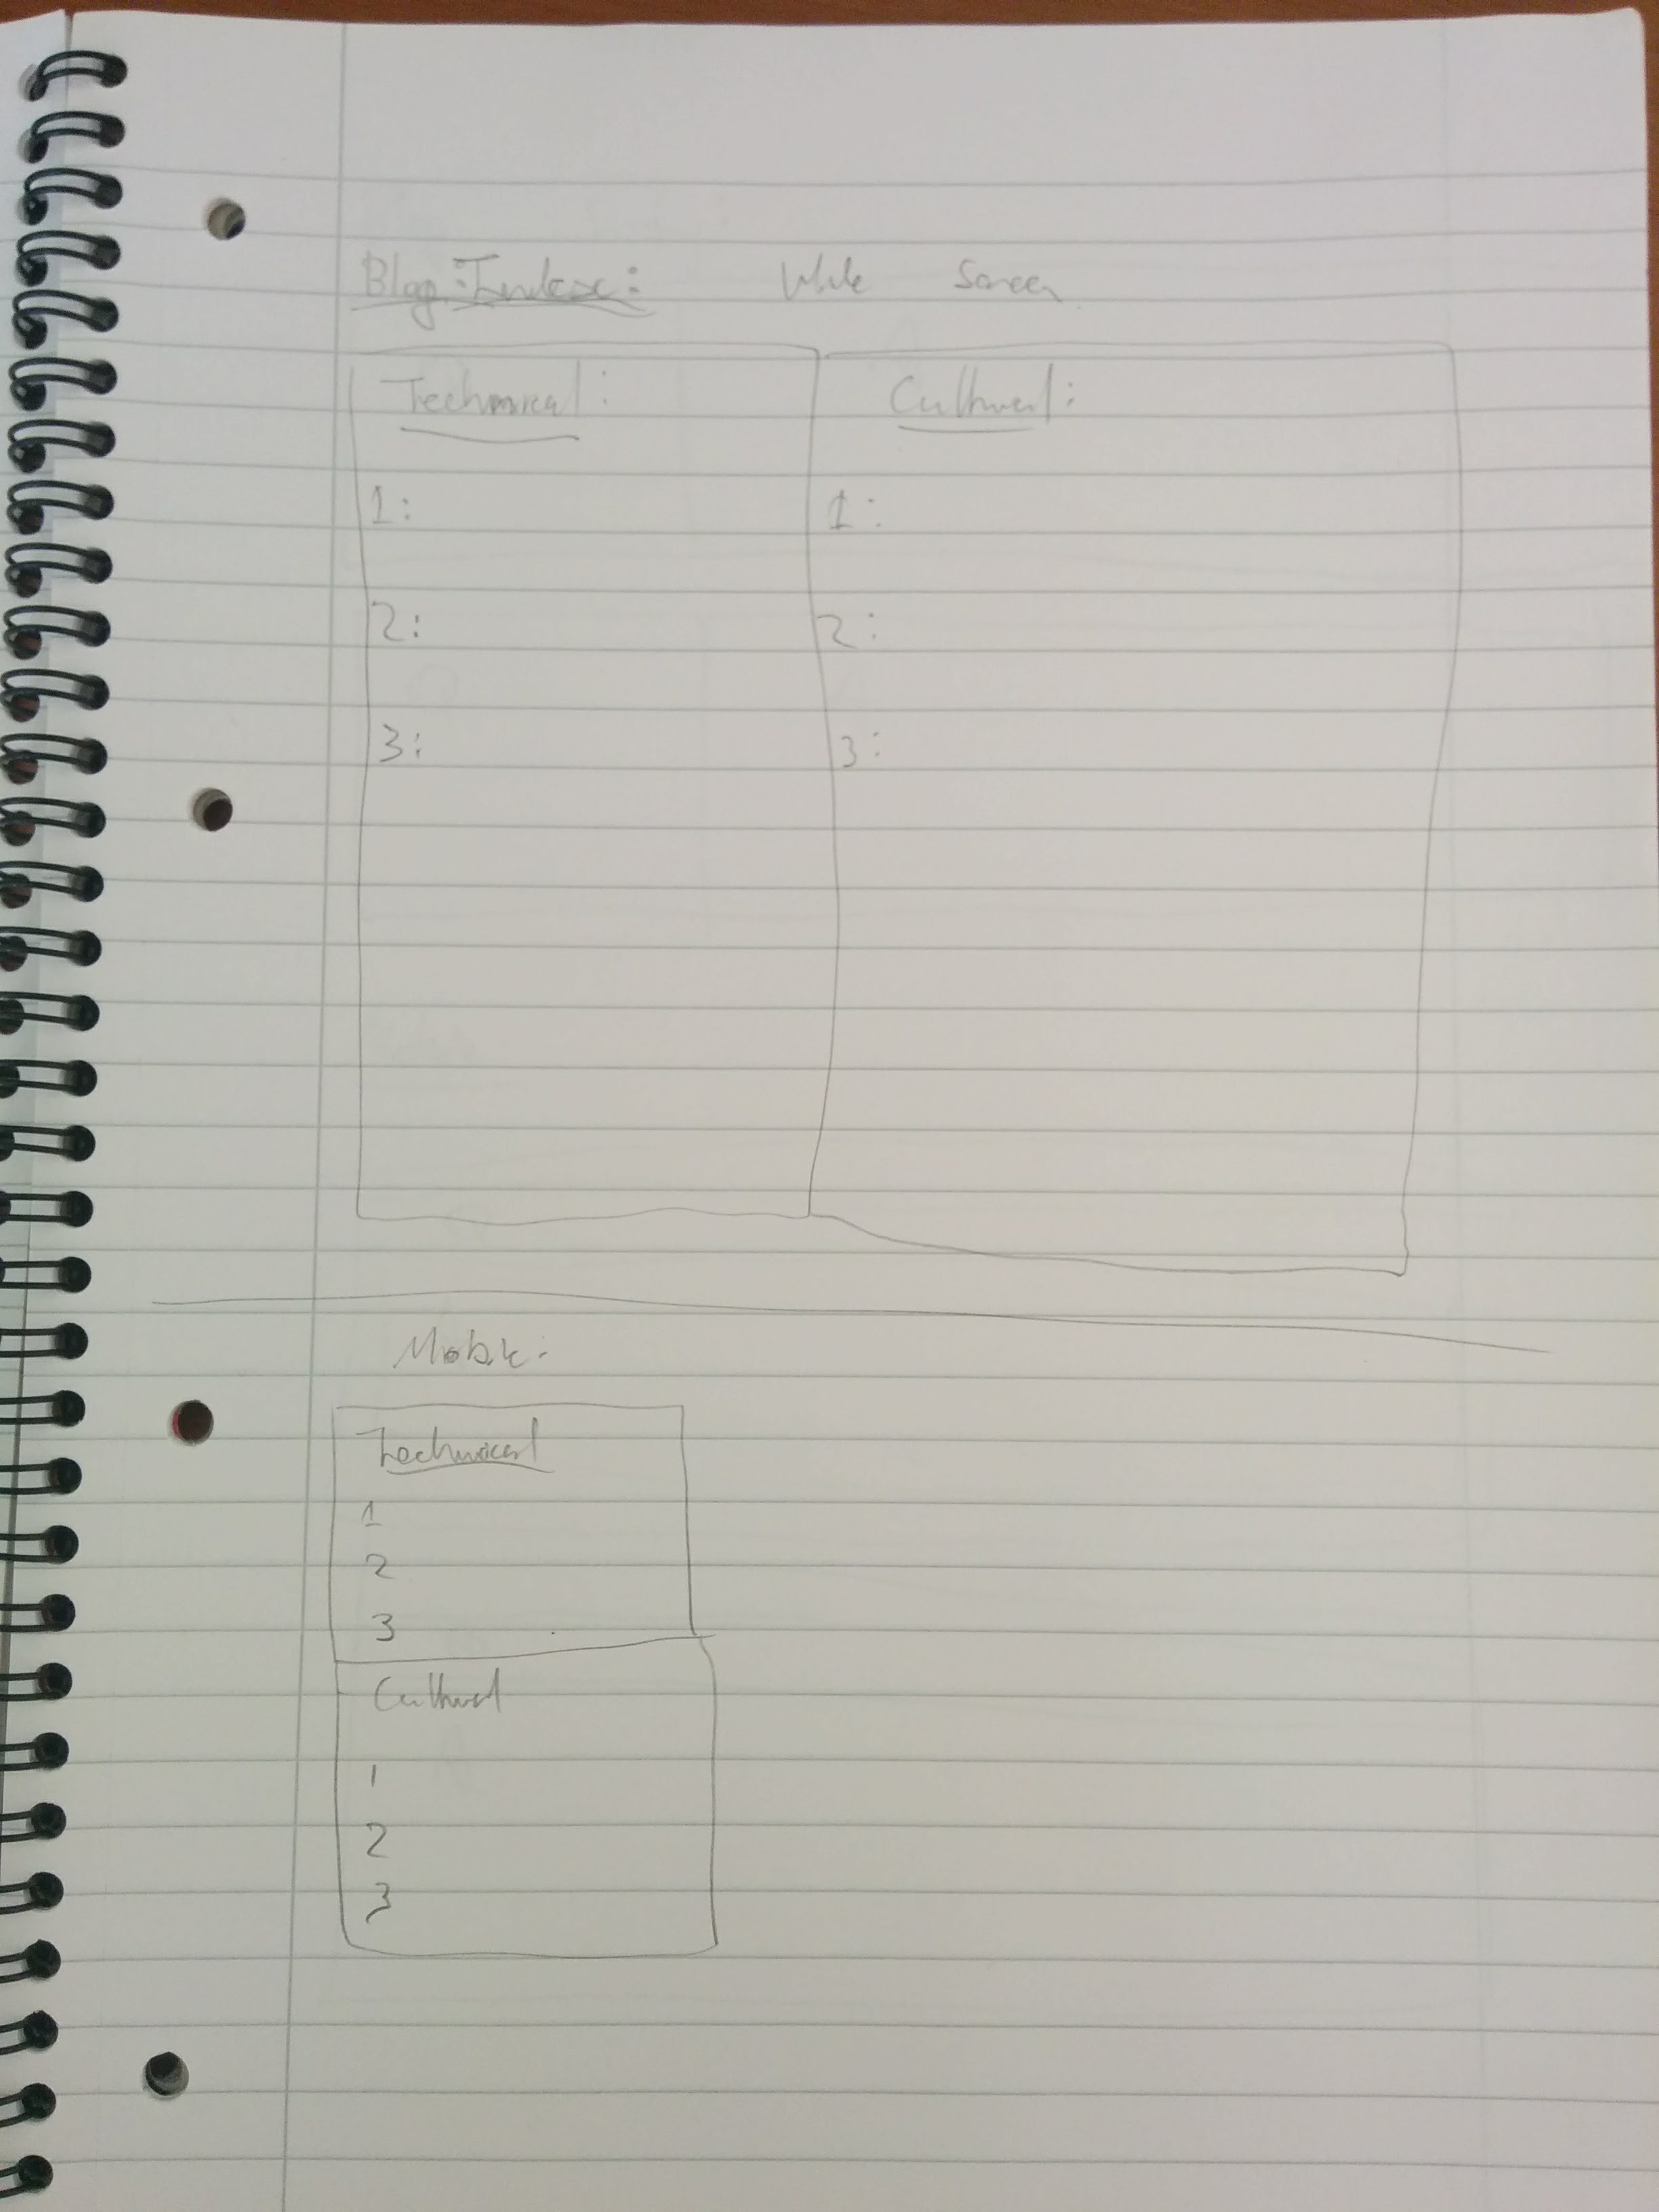 Blog-Index: Whole Screen
Technical: Cultural:
1: 1:
2: 2:
3: 3:
Mobile:
Technical
1
2
3
Cultural
1
2
3